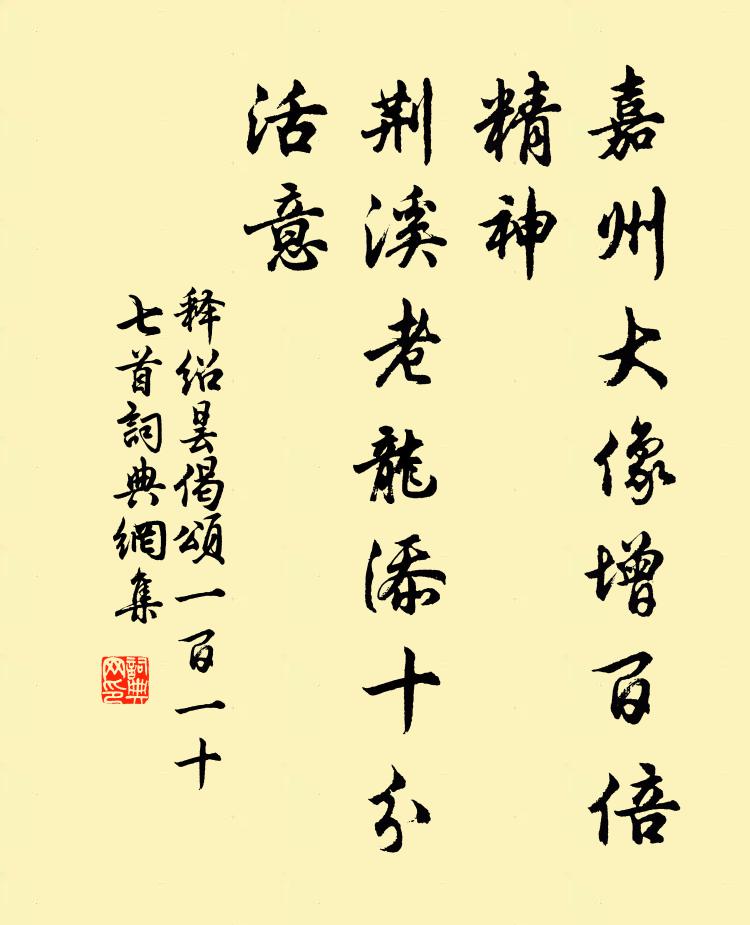 嘉州大像增百倍
精神
荆溪老龍添十分
活意
释绍昙偈頌一百一十
七首詞典網集
詞典
网印